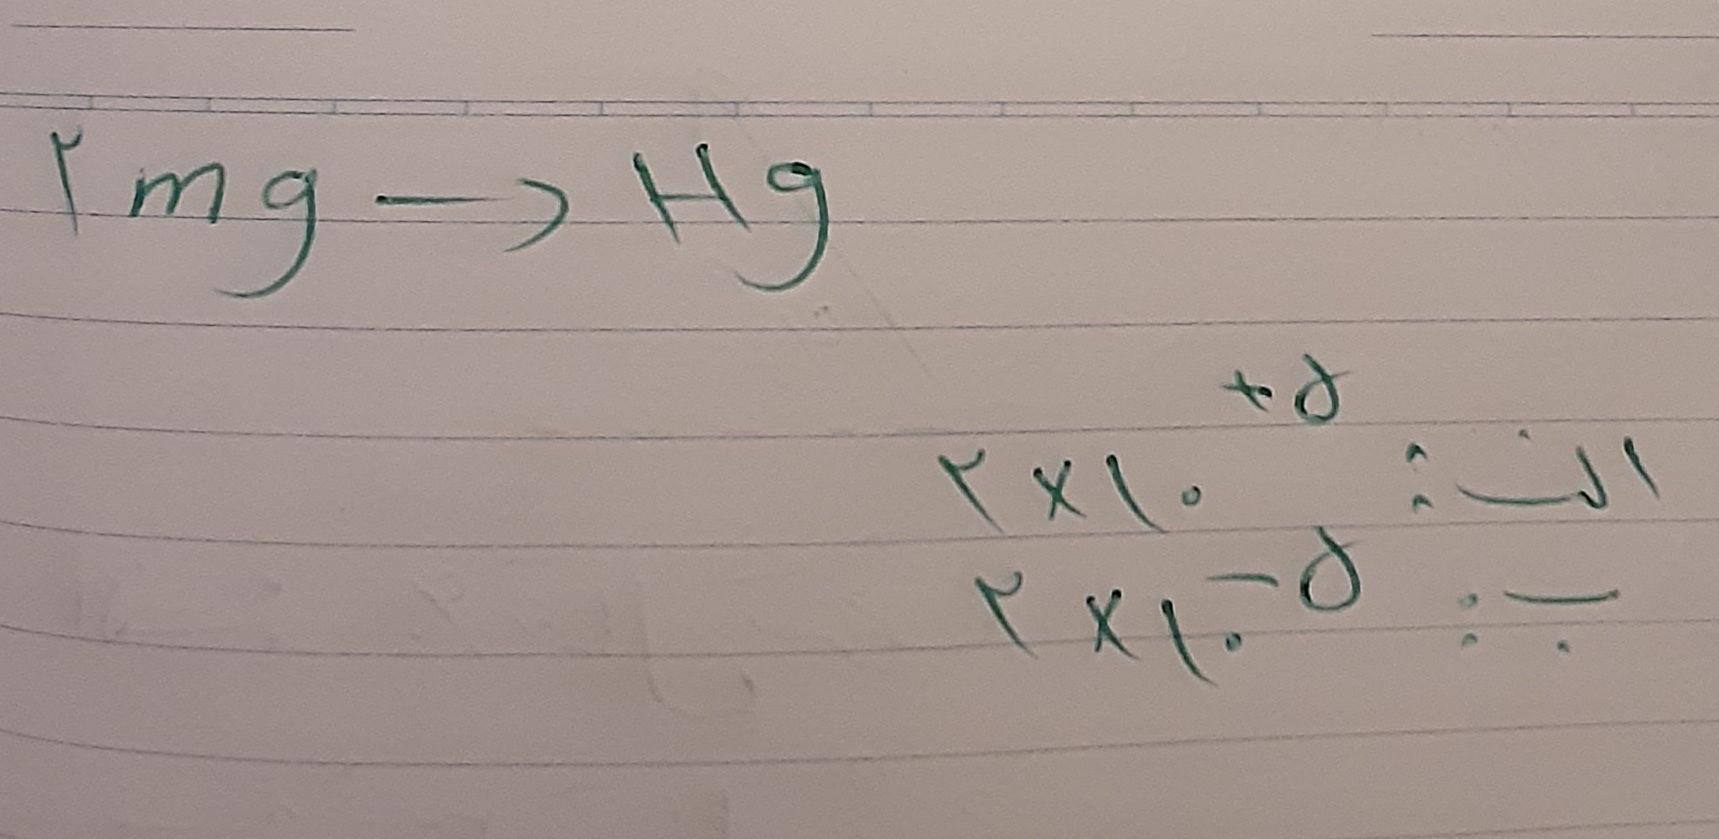 ۲ mg → Hg
الف: ۲×۱۰⁺⁵
ب: ۲×۱۰⁻⁵